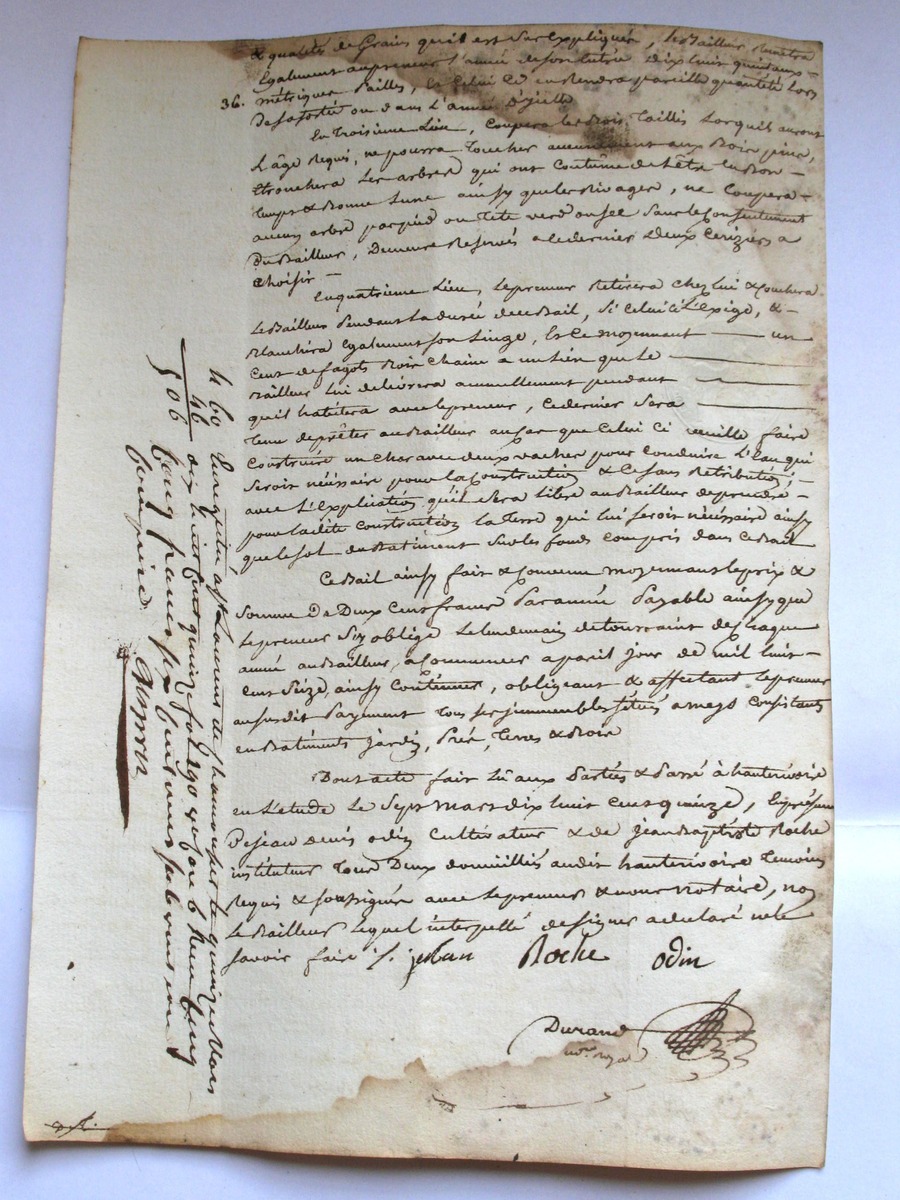 & qualités de Grains qu'il est sus Expliqués, le Bailleur Remettra
Egalement au preneur l'année de son Entrée dix huit quintaux
métriques pailles, Et Celui Cÿ en Rendra pareille quantité Lors
36.
De sa sortie ou dans l'année d'Icelle
En Troisieme Lieu, Coupera les Bois Taillis Lorsquil auront
L'âge Requi, ne pourra Toucher aucunement aux Bois pins,
Etronchera Les arbres qui ont Coutume de L'être En Bon
temps & Bonne Lune ainsy que les Rivages, ne Coupera
aucun arbre par pied ou tete verd ou sec Sans le Consentement
du Bailleur, Demeure Reservés a ce dernier Deux Ceriziers a
Choisir
En quatrieme Lieu, Le preneur Retirera Chez Lui & Couchera
Le Bailleur Pendant La durée de ce Bail, si Celui Ci L'Exige, &
Blanchira Egalement son Linge, Et Ce moyennant un
Cent de fagots Bois Chaine a un Lien que Le
Bailleur Lui delivrera annuellement pendant
qu'il habitera avec le preneur, Ce dernier Sera
Tenu de prêter au Bailleur au Cas que Celui Ci veuille faire
Construire un Char avec deux vaches pour Conduire L'Eau qui
seroit nécéssaire pour la Construction & Ce sans Retribution;
avec L'Explication qu'il sera Libre au Bailleur de prendre
pour ladite Construction la Terre qui lui seroit nécéssaire ainsy
que le sol du Batiment sur les fonds Compris dans Ce Bail
Ce Bail ainsy fait & Convenu moyennant le prix &
Somme De Deux Cent francs Par année Payable ainsy que
Le preneur s'y oblige Le lendemain de toussaint de Chaque
année au Bailleur, a Commencer a pareil jour de mil huit
Cent Seize, ainsy Continuer, obligeant & affectant Le preneur
au susdit Payement Tous ses jmmeubles situés a meys Consistants
en Batiments jardin, Prés, Terres & Bois
Dont acte fait Lû aux Parties & Passé à hauterivoire
en L'étude Le Sept mars dix huit Cent quinze, En présence
De jean denis odin Cultivateur & de jean Baptiste Roche
instituteur Tous Deux domicilliés au dit hauterivoire Temoins
Requis & soussignés avec le preneur & nous notaire, non
Le Bailleur Lequel interpellé de signer a déclaré ne le
savoir faire ./.
Roche
odin
Durand
nre. royal
4 60 Enregistré à St Laurent de Chamousset le quinze Mars
46 dix huit Cent quinze
506 Cinq francs six Centimes subvention
Comprise.